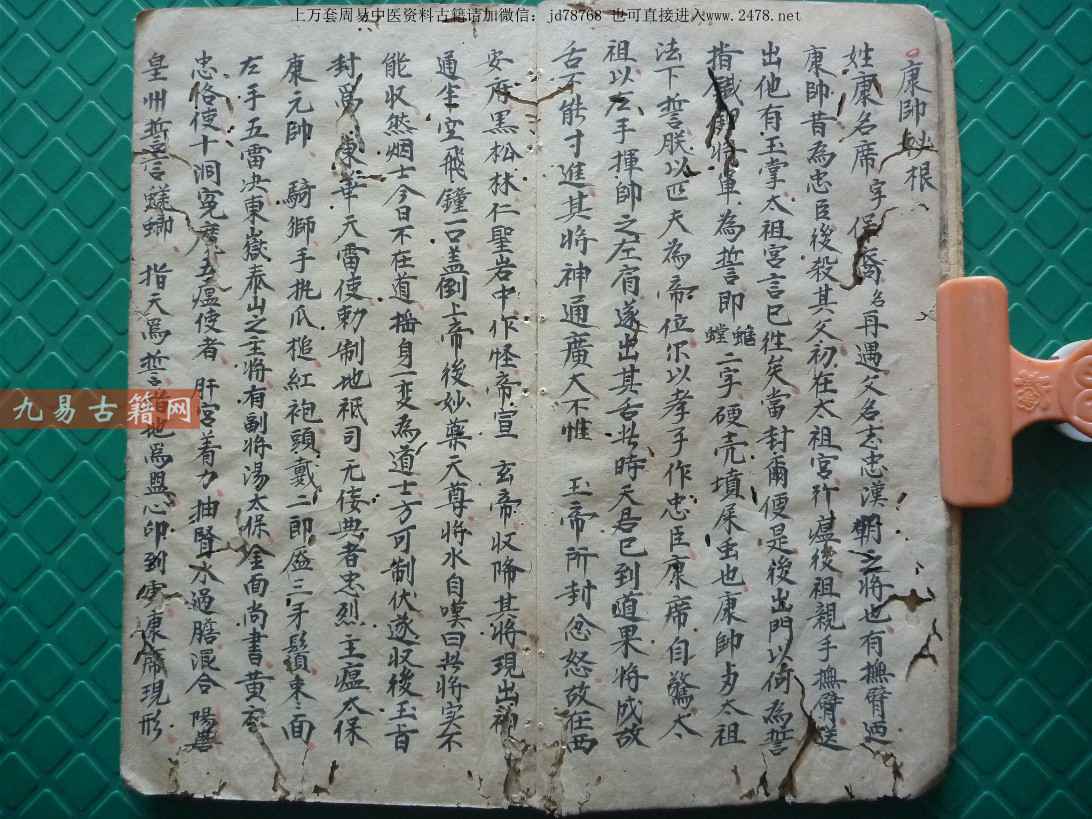 上万套周易中医资料古籍请加微信：jd78768 也可直接进入www.2478.net
康帥妙根
姓康名席 字保裔名再遇父名志忠漢朝之將也有撫臂迺
康帥昔為忠臣後殺其父初在太祖宮行瘟後祖親手撫臂送
出他有玉掌太祖宮言已徃矣當封爾便是後出門以倚為誓
指 將軍為誓即螳蜋二字硬壳墳屎虫也康帥与太祖
法下誓朕以匹夫為帝位尔以孝子作忠臣康席自驚太
祖以左手揮帥之左肩遂出其舌此時天君已到道果將成故
舌不能寸進其將神通廣大不惟 玉帝所封忿怒故在西
安府黑松林仁聖岩中作怪帝宣 玄帝收降其將現出神
通半空飛鐘一口盖倒上帝後妙藥天尊將水自嘆曰此將实不
能收然烟士今日不在道摇身一变為道士方可制伏遂収後玉旨
封爲 東華天雷使勅制地祇司元 典者忠烈主瘟太保
康元帥 騎獅手执瓜槌紅袍頭戴二郎盔三牙鬚束面
左手五雷決東嶽泰山之主將有副將湯太保金面尚書黄
忠佫使十洞寃 五瘟使者 肝宮着力抽腎水過膽混合 陽
皇州誓言蜣螂 指天爲誓 地爲盟心印到 康席現形
九易古籍网